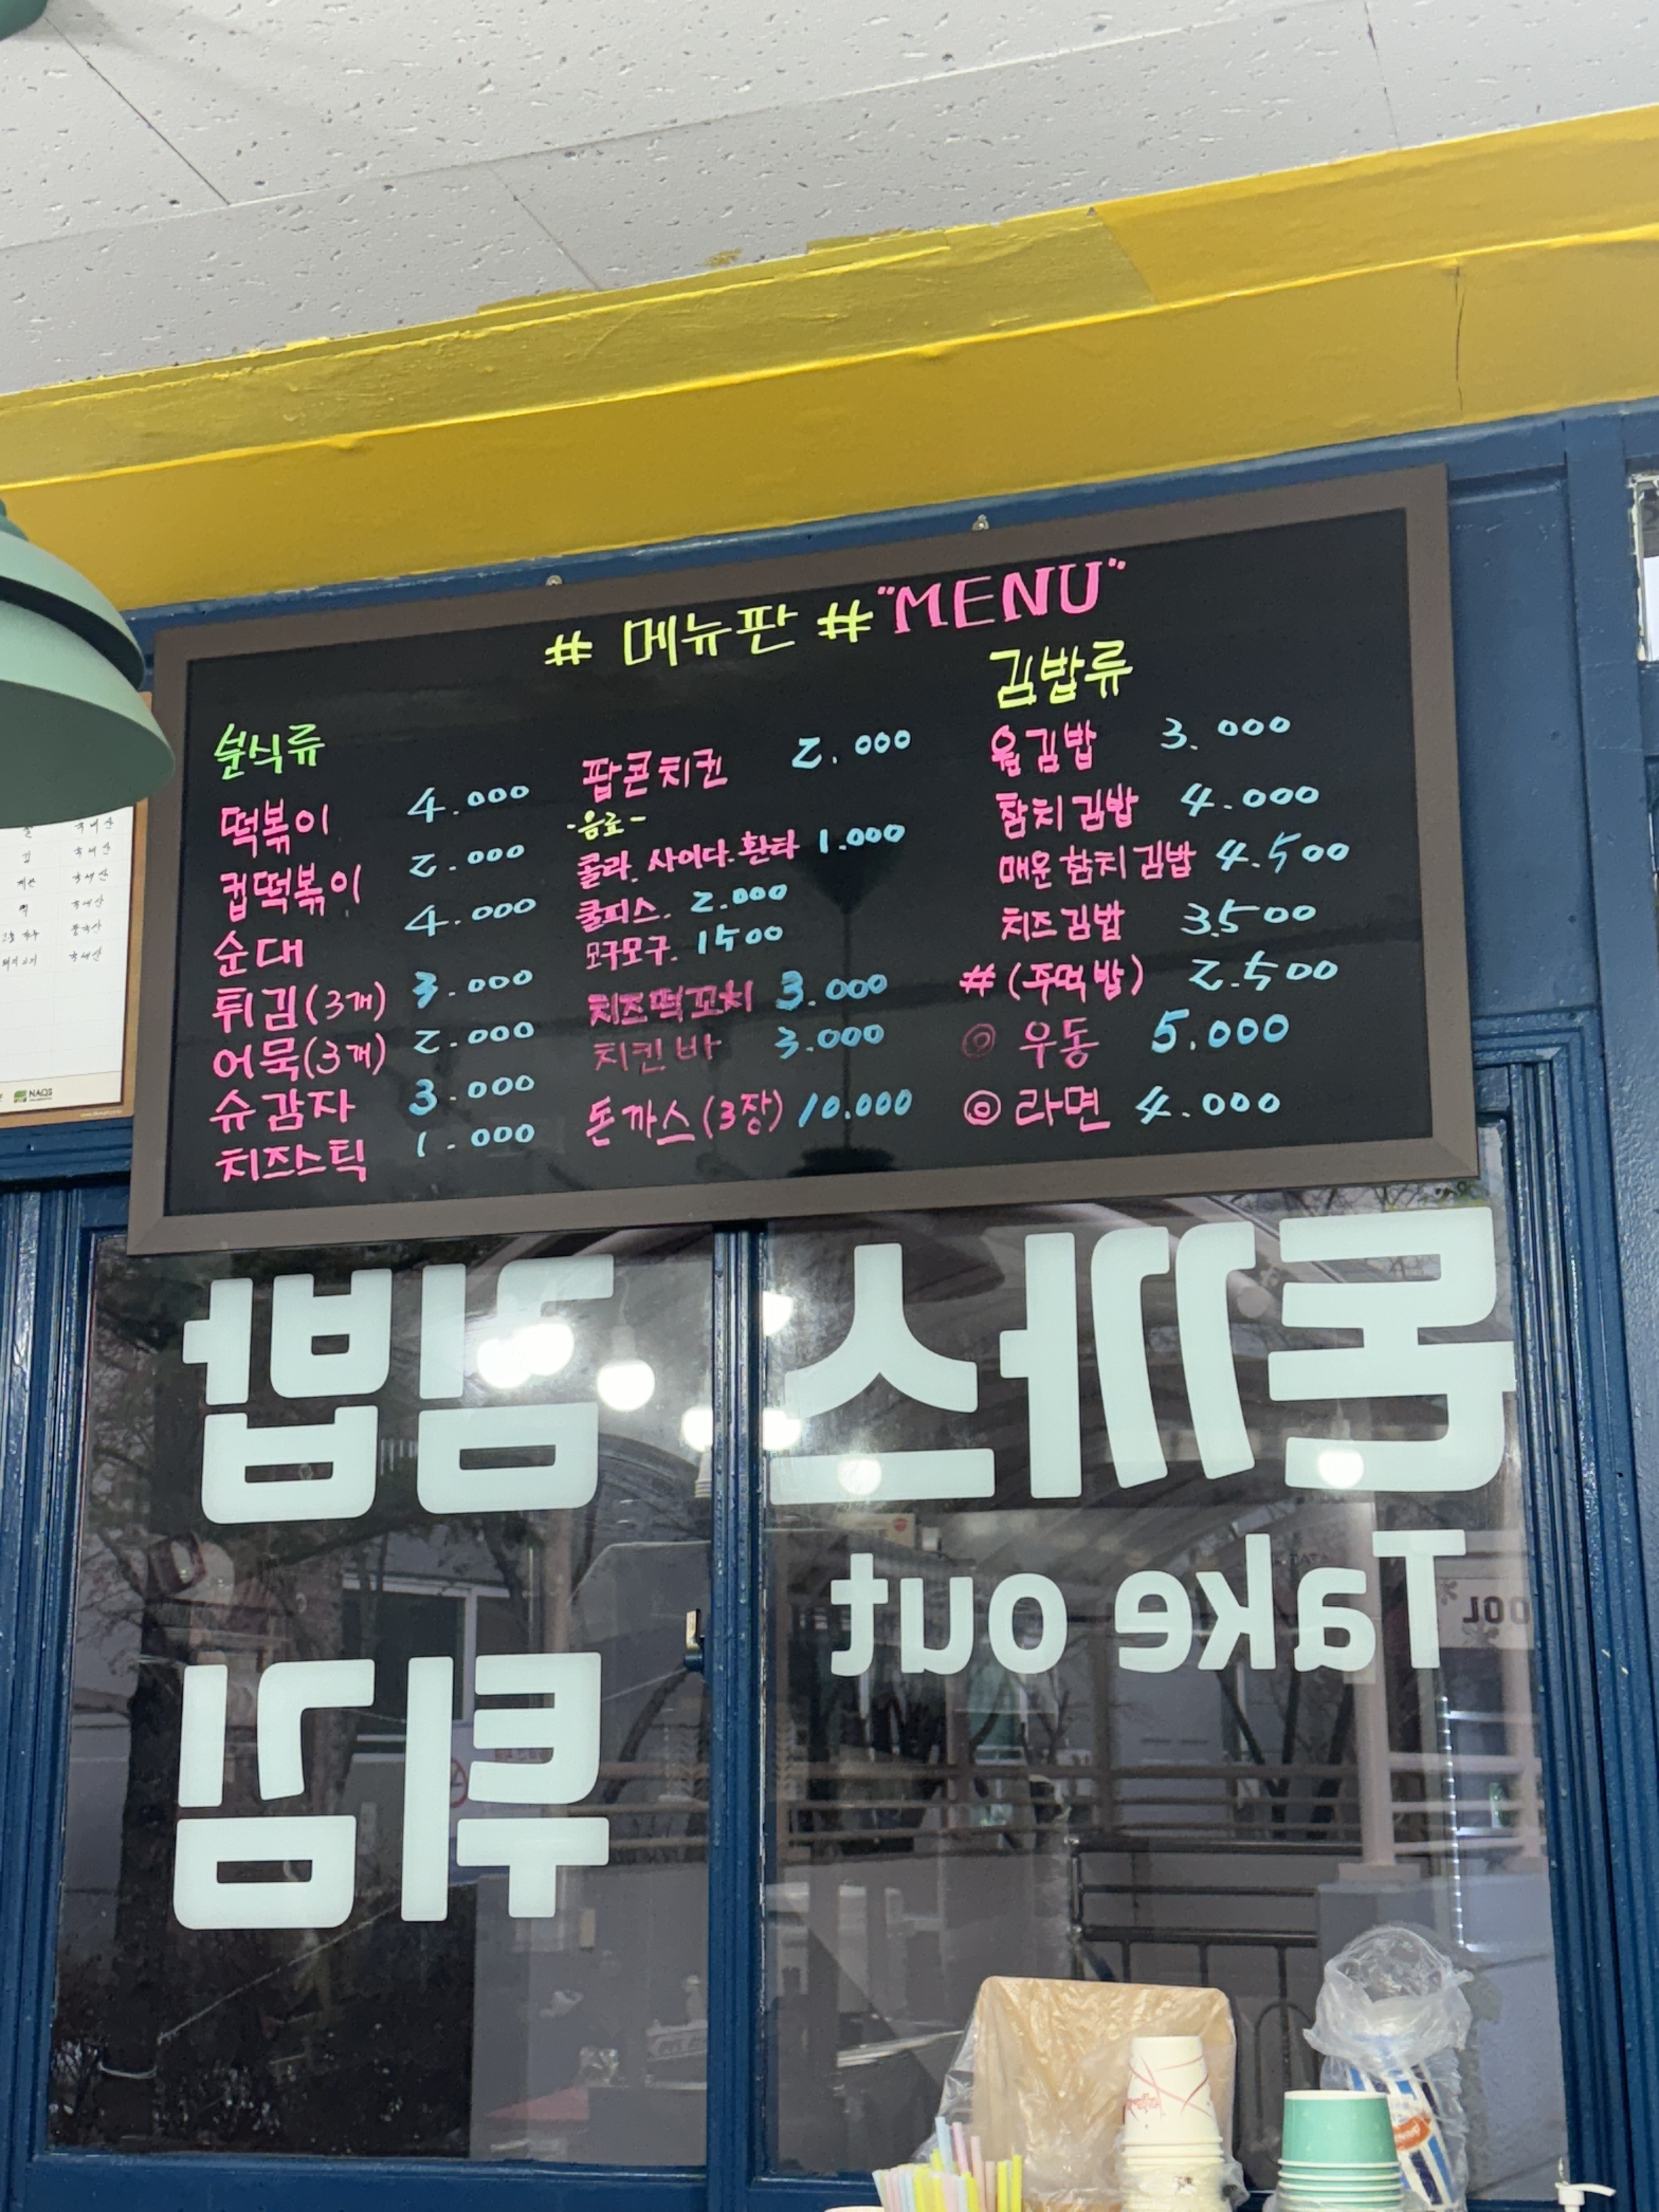 # 메뉴판 # "MENU"
분식류
떡볶이 4.000
컵떡볶이 2.000
순대 4.000
튀김(3개) 3.000
어묵(3개) 2.000
슈감자 3.000
치즈스틱 1.000
팝콘치킨 2.000
-음료-
콜라. 사이다. 환타 1.000
쿨피스. 2.000
모구모구. 1500
치즈떡꼬치 3.000
치킨바 3.000
돈까스(3장) 10.000
김밥류
김밥 3.000
참치김밥 4.000
매운참치김밥 4.500
치즈김밥 3.500
#(주먹밥) 2.500
◎ 우동 5.000
◎ 라면 4.000
김밥
튀김
돈까스
Take out
국내산
김 국내산
국내산
국내산
국내산
NAQS